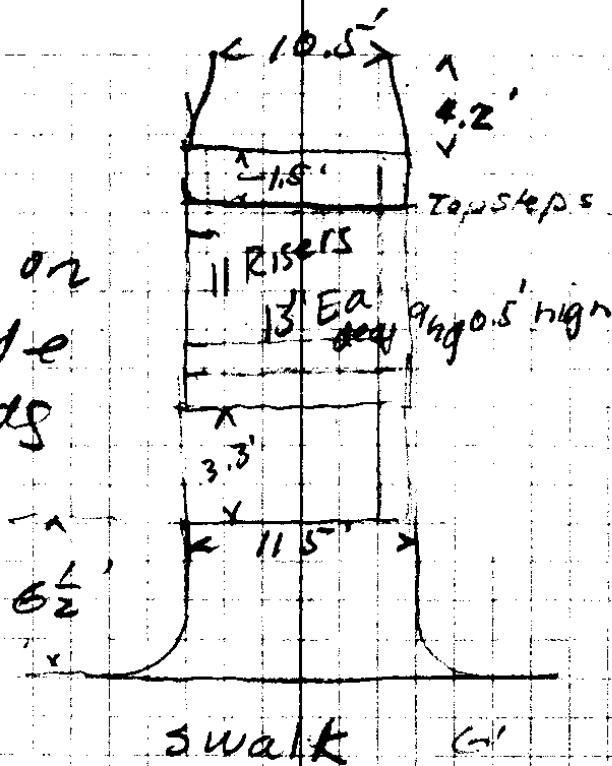 10.5'
4.2'
1.5'
Top steps
on
11 Risers
13" Ea
0.5' high
3.3'
11 5'
6 1/2'
swalk